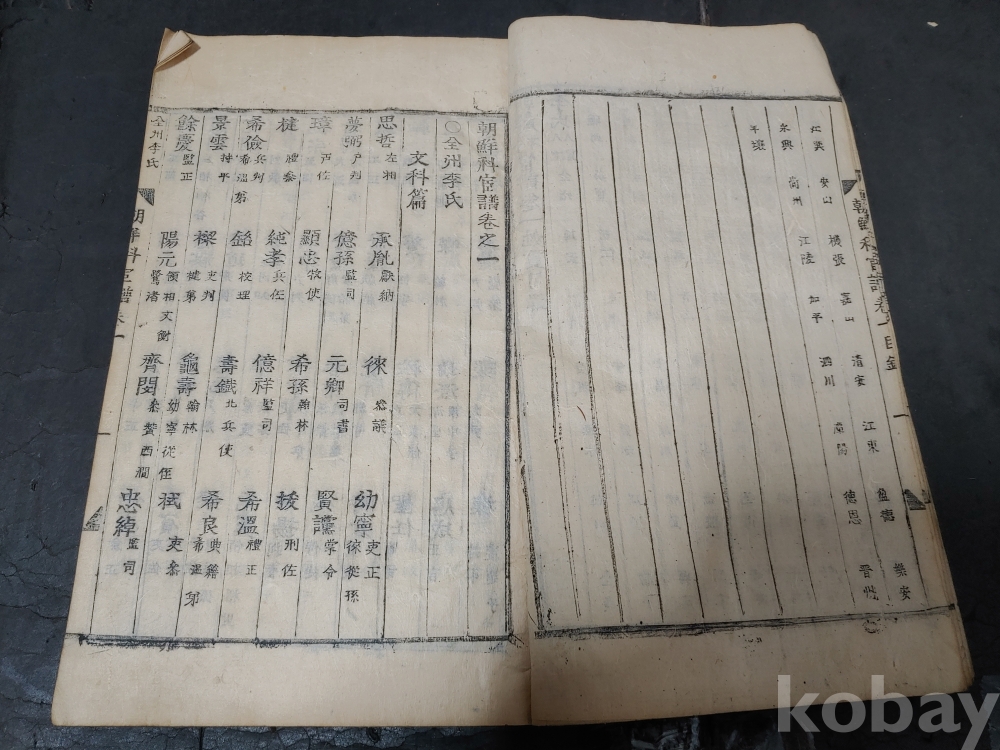 朝鮮科宦譜卷之一 目錄
一
安山
橫張
嘉山
清安
江東
樂安
永興
江陵
加平
晋州
朝鮮科宦譜卷之一
〇全州李氏
文科篇
思哲 左相 承胤 獻納 徠 參議 幼寧 吏正 徠從孫
夢弼 戶判 億孫 監司 元卿 司書 賢讜 掌令
璋 戶佐 顯忠 牧使 希孫 翰林 援 刑佐
楗 禮參 純孝 兵佐 億祥 監司 希溫 禮正
希儉 兵判 希溫第 銘 校理 壽鐵 北兵使 希良 典籍 希溫第
景雲 持平 樑 吏判 楗第 龜壽 翰林 幼寧從侄 栻 吏參
餘慶 監正 陽元 領相 文衡 鷺渚 齊閔 參贊 西澗 忠綽 監司
全州李氏
朝鮮科宦譜卷一
一
kobay